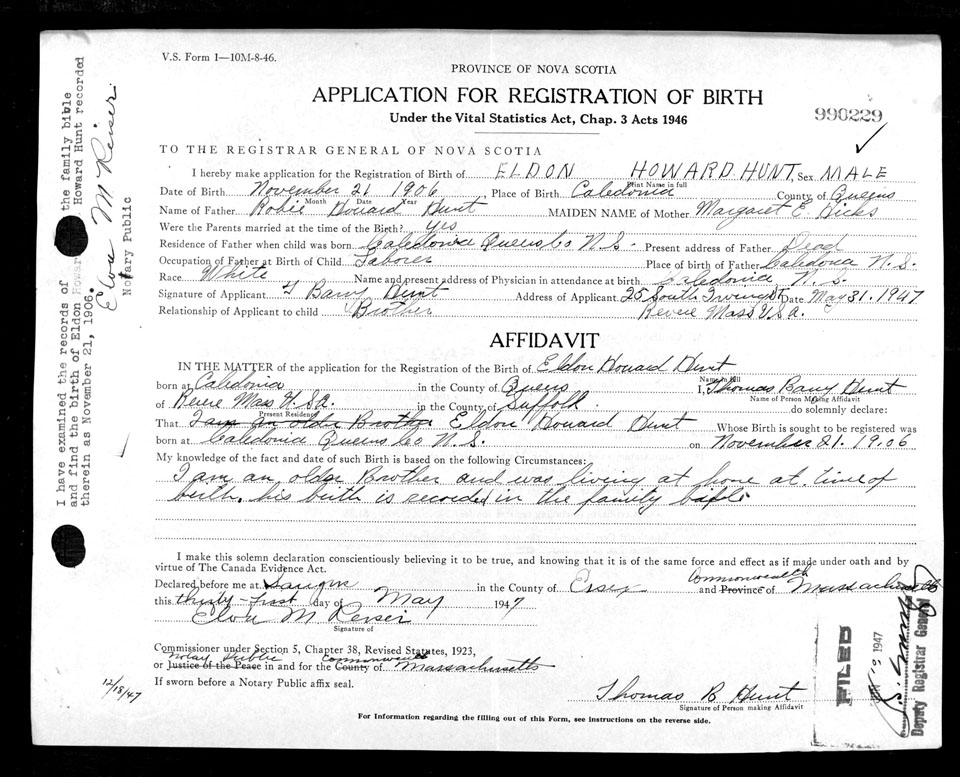 V.S. Form 1—10M-8-46.
PROVINCE OF NOVA SCOTIA
APPLICATION FOR REGISTRATION OF BIRTH
Under the Vital Statistics Act, Chap. 3 Acts 1946
990229
TO THE REGISTRAR GENERAL OF NOVA SCOTIA
I hereby make application for the Registration of Birth of ELDON HOWARD HUNT, Sex MALE
Print Name in full
Date of Birth November 21 1906 Place of Birth Caledonia County of Queens
Month Date Year
Name of Father Robie Howard Hunt MAIDEN NAME of Mother Margaret E. Dicks
Were the Parents married at the time of the Birth? Yes
Residence of Father when child was born Caledonia Queens Co N.S. Present address of Father Dead
Occupation of Father at Birth of Child Laborer Place of birth of Father Caledonia N.S.
Race White Name and present address of Physician in attendance at birth Caledonia N.S.
Signature of Applicant T Barry Hunt Address of Applicant 25 South Irving St Date May 31. 1947
Relationship of Applicant to child Brother Revere Mass U.S.A.
AFFIDAVIT
IN THE MATTER of the application for the Registration of the Birth of Eldon Howard Hunt
Name in full
born at Caledonia in the County of Queens I, Thomas Barry Hunt
Name of Person Making Affidavit
of Revere Mass U.S.A. in the County of Suffolk do solemnly declare:
Present Residence
That I am an older Brother Eldon Howard Hunt Whose Birth is sought to be registered was
born at Caledonia Queens Co N.S. on November 21. 1906
My knowledge of the fact and date of such Birth is based on the following Circumstances:
I am an older Brother and was living at home at time of
birth. his birth is recorded in the family bible
I make this solemn declaration conscientiously believing it to be true, and knowing that it is of the same force and effect as if made under oath and by
virtue of The Canada Evidence Act.
Commonwealth
Declared before me at Saugus in the County of Essex and Province of Massachusetts
this thirty-first day of May 1947
Elon M Reiser
Signature of
Commissioner under Section 5, Chapter 38, Revised Statutes, 1923,
Notary Public Commonwealth
or Justice of the Peace in and for the County of Massachusetts
If sworn before a Notary Public affix seal.
12/18/47
Thomas B Hunt
Signature of Person making Affidavit
For Information regarding the filling out of this Form, see instructions on the reverse side.
I have examined the records of the family bible
and find the birth of Eldon Howard Hunt recorded
therein as November 21, 1906.
Elon M Reiser
Notary Public
FILED
1947
Deputy Registrar General